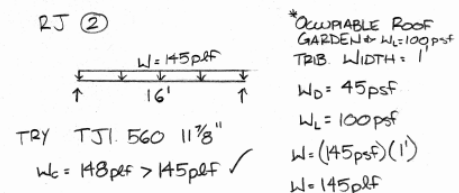 RJ 2
W = 145plf
16'
TRY TJI. 560 11 7/8"
Wc = 148plf > 145plf ✓
*OCCUPIABLE ROOF
GARDEN & WL=100psf
TRIB. WIDTH = 1'
WD = 45psf
WL = 100psf
W = (145psf)(1')
W = 145plf